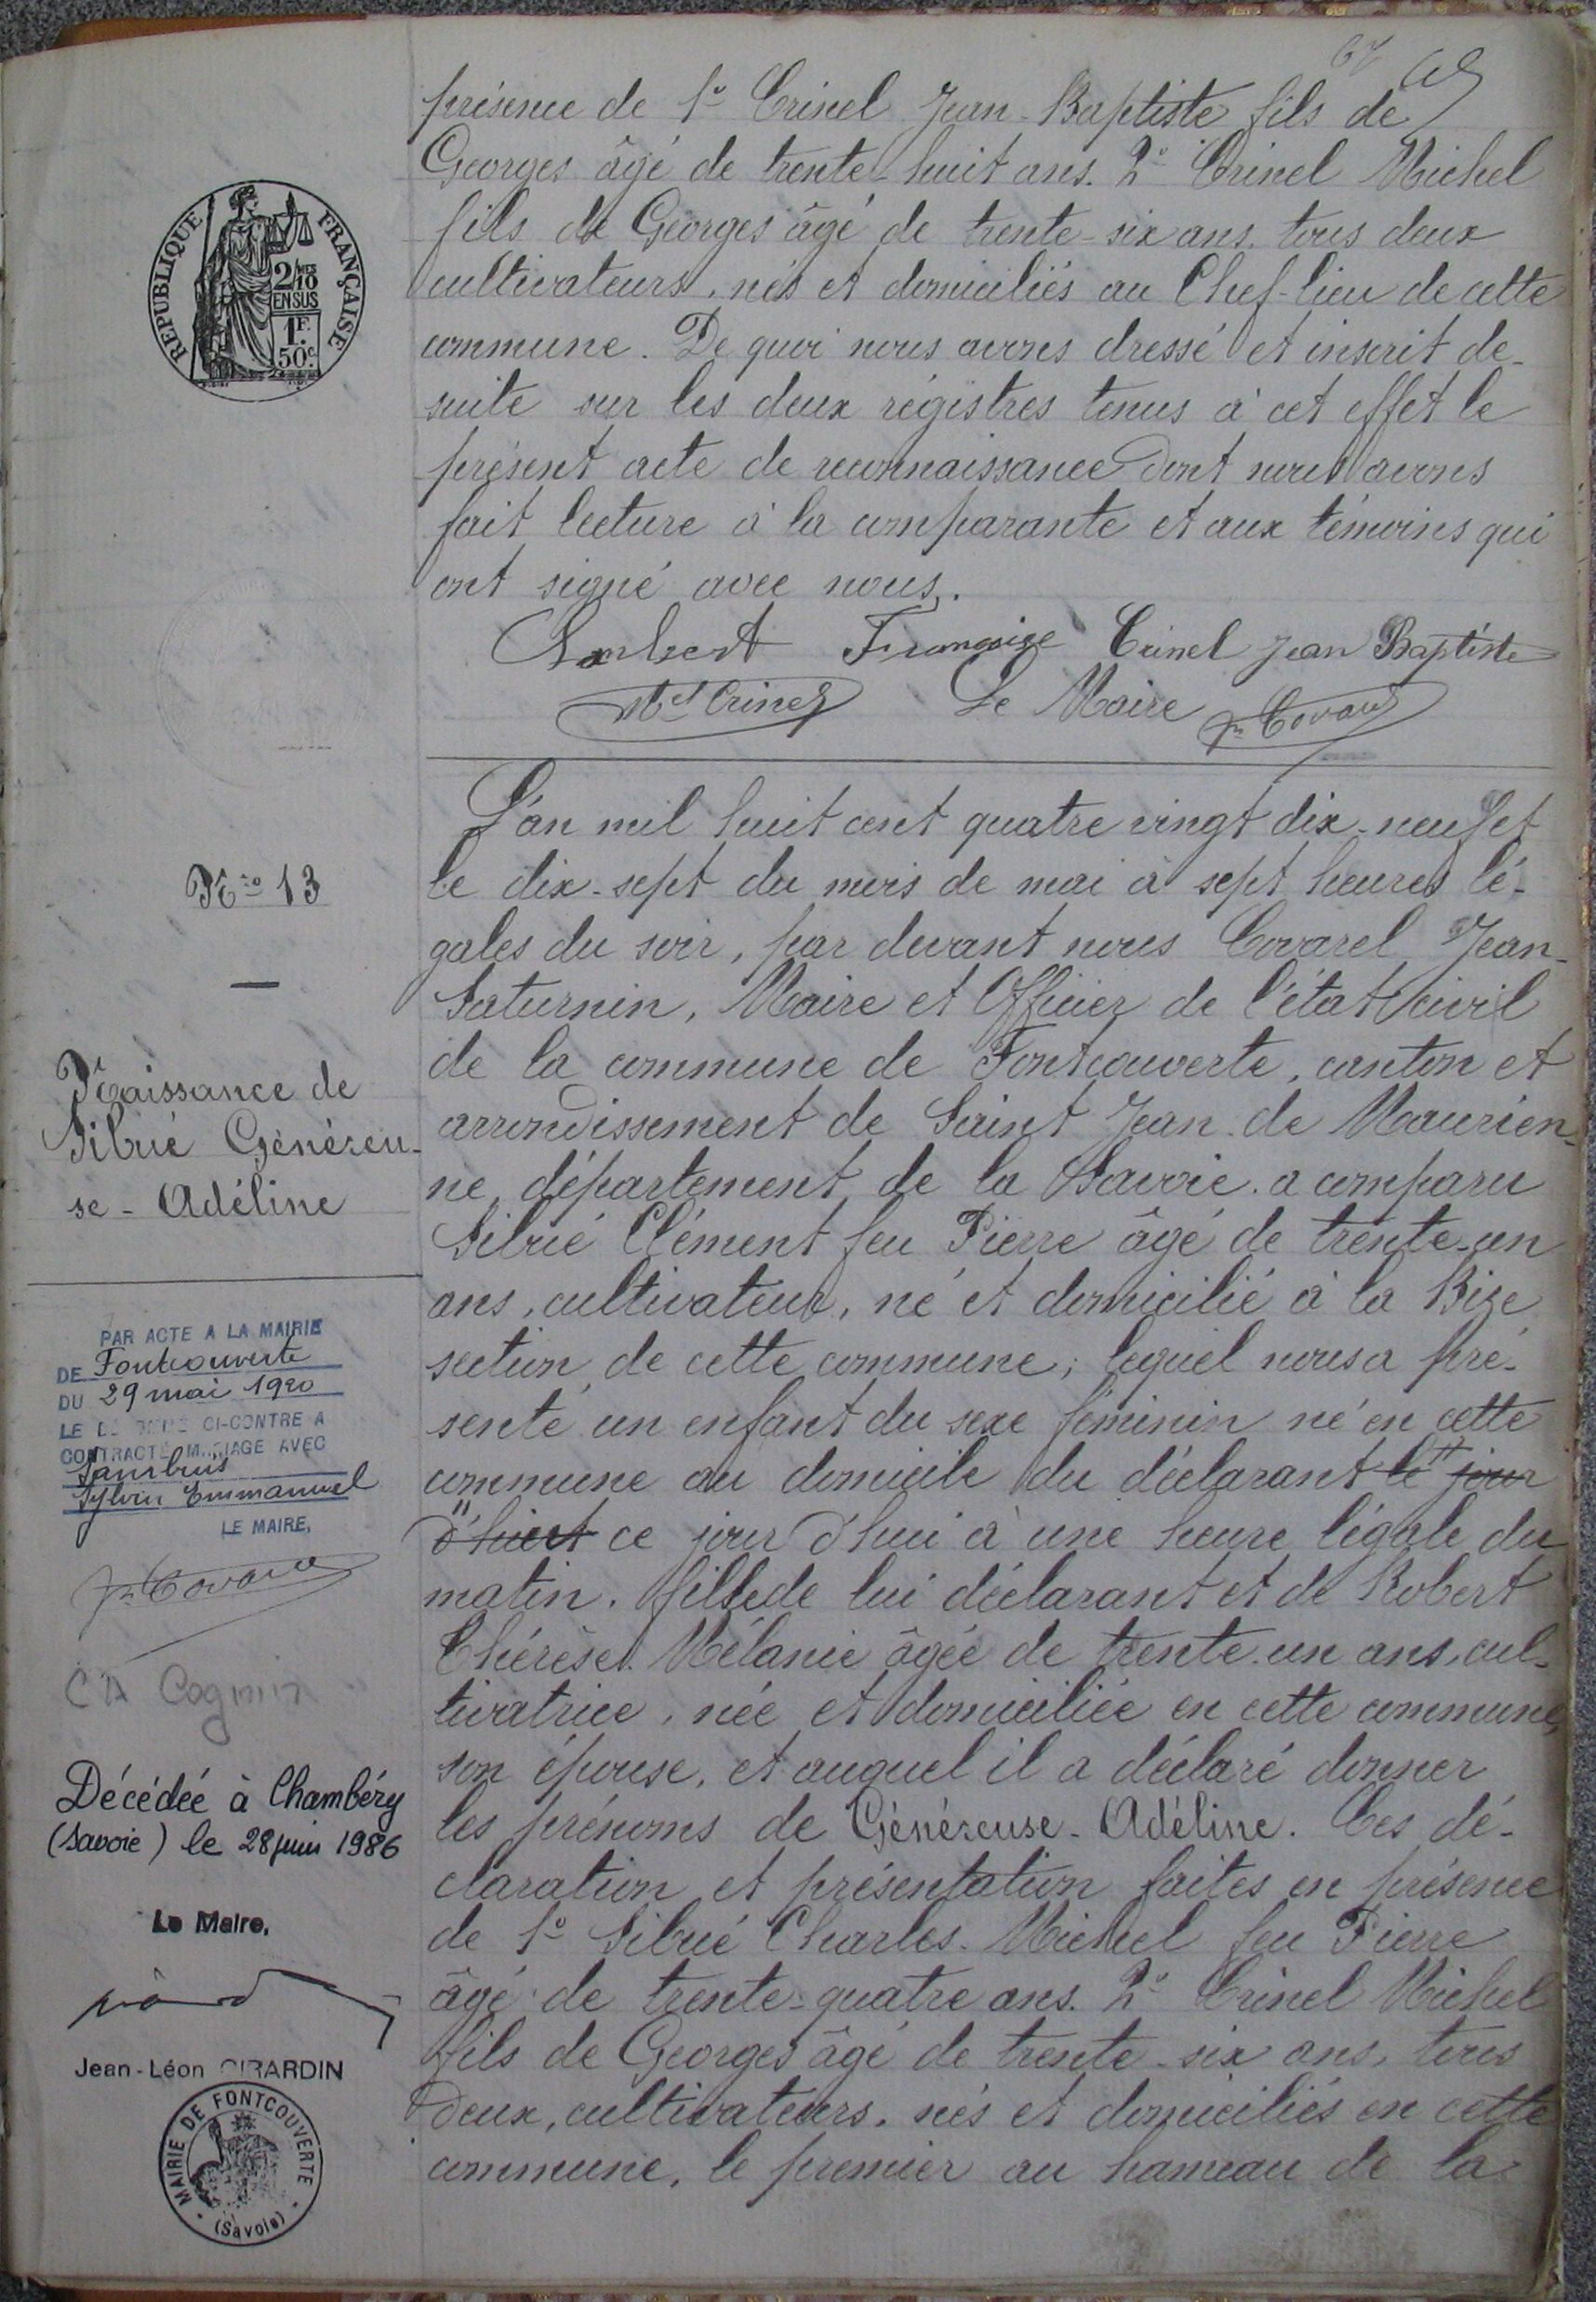 présence de 1º Crinel Jean-Baptiste fils de
Georges âgé de trente-huit ans. 2º Crinel Michel
fils de Georges âgé de trente-six ans. tous deux
cultivateurs, nés et domiciliés au Chef-lieu de cette
commune. De quoi nous avons dressé et inscrit de
suite sur les deux régistres tenus à cet effet le
présent acte de reconnaissance dont nous avons
fait lecture à la comparante et aux témoins qui
ont signé avec nous.
Lambert Françoise Crinel Jean Baptiste
Mel Crinel Le Maire Jn Covarel
RÉPUBLIQUE FRANÇAISE
2/10MES
EN SUS
1F.
50c.
Nº 13
Naissance de
Sibué Généreu-
se-Adéline
L'an mil huit cent quatre vingt dix-neuf et
le dix-sept du mois de mai à sept heures lé-
gales du soir, par devant nous Covarel Jean-
Saturnin, Maire et Officier de l'état civil
de la commune de Fontcouverte, canton et
arrondissement de Saint Jean de Maurien-
ne, département de la Savoie. a comparu
Sibué Clément feu Pierre âgé de trente-un
ans, cultivateur, né et domicilié à la Bise
section de cette commune; lequel nous a pré-
senté un enfant du sexe féminin né en cette
commune au domicile du déclarant le jour
d'huit ce jour d'hui à une heure légale du
matin. fille de lui déclarant et de Robert
Thérèse Mélanie âgée de trente-un ans, cul-
tivatrice, née et domiciliée en cette commune,
son épouse, et auquel il a déclaré donner
les prénoms de Généreuse-Adéline. Ces dé-
claration et présentation faites en présence
de 1º Sibué Charles-Michel feu Pierre
âgé de trente-quatre ans. 2º Crinel Michel
fils de Georges âgé de trente-six ans, tous
deux, cultivateurs, nés et domiciliés en cette
commune, le premier au hameau de la
PAR ACTE A LA MAIRIE
DE Fontcouverte
DU 29 mai 1920
LE CI-CONTRE A
CONTRACTÉ MARIAGE AVEC
Sambuis
Sylvin Emmanuel
LE MAIRE,
Jn Covarel
Cognin
Décédée à Chambéry
(Savoie) le 28 juin 1986
Le Maire,
Jean-Léon GIRARDIN
MAIRIE DE FONTCOUVERTE
(Savoie)